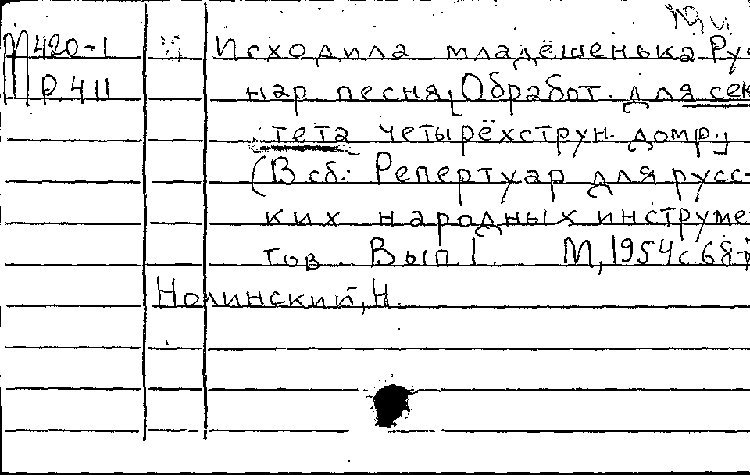 М420-1 Исходила младёшенька. Ру
Р.411 нар песня, Обработ. для сек
тета четырёхструн. домр.,
(В сб.: Репертуар для русс-
ких народных инструме
тов. Вып. I. М, 1954 с. 68-
Нолинский, Н.